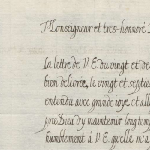 Monseigneur et tres-honnoré
La lettre de V. E. du vingt et de
bien delivrée, le vingt et septie
entendu avec grande joye et all
prie Dieu d'y maintenir longtem
humblement à V. E. qu'elle m'a